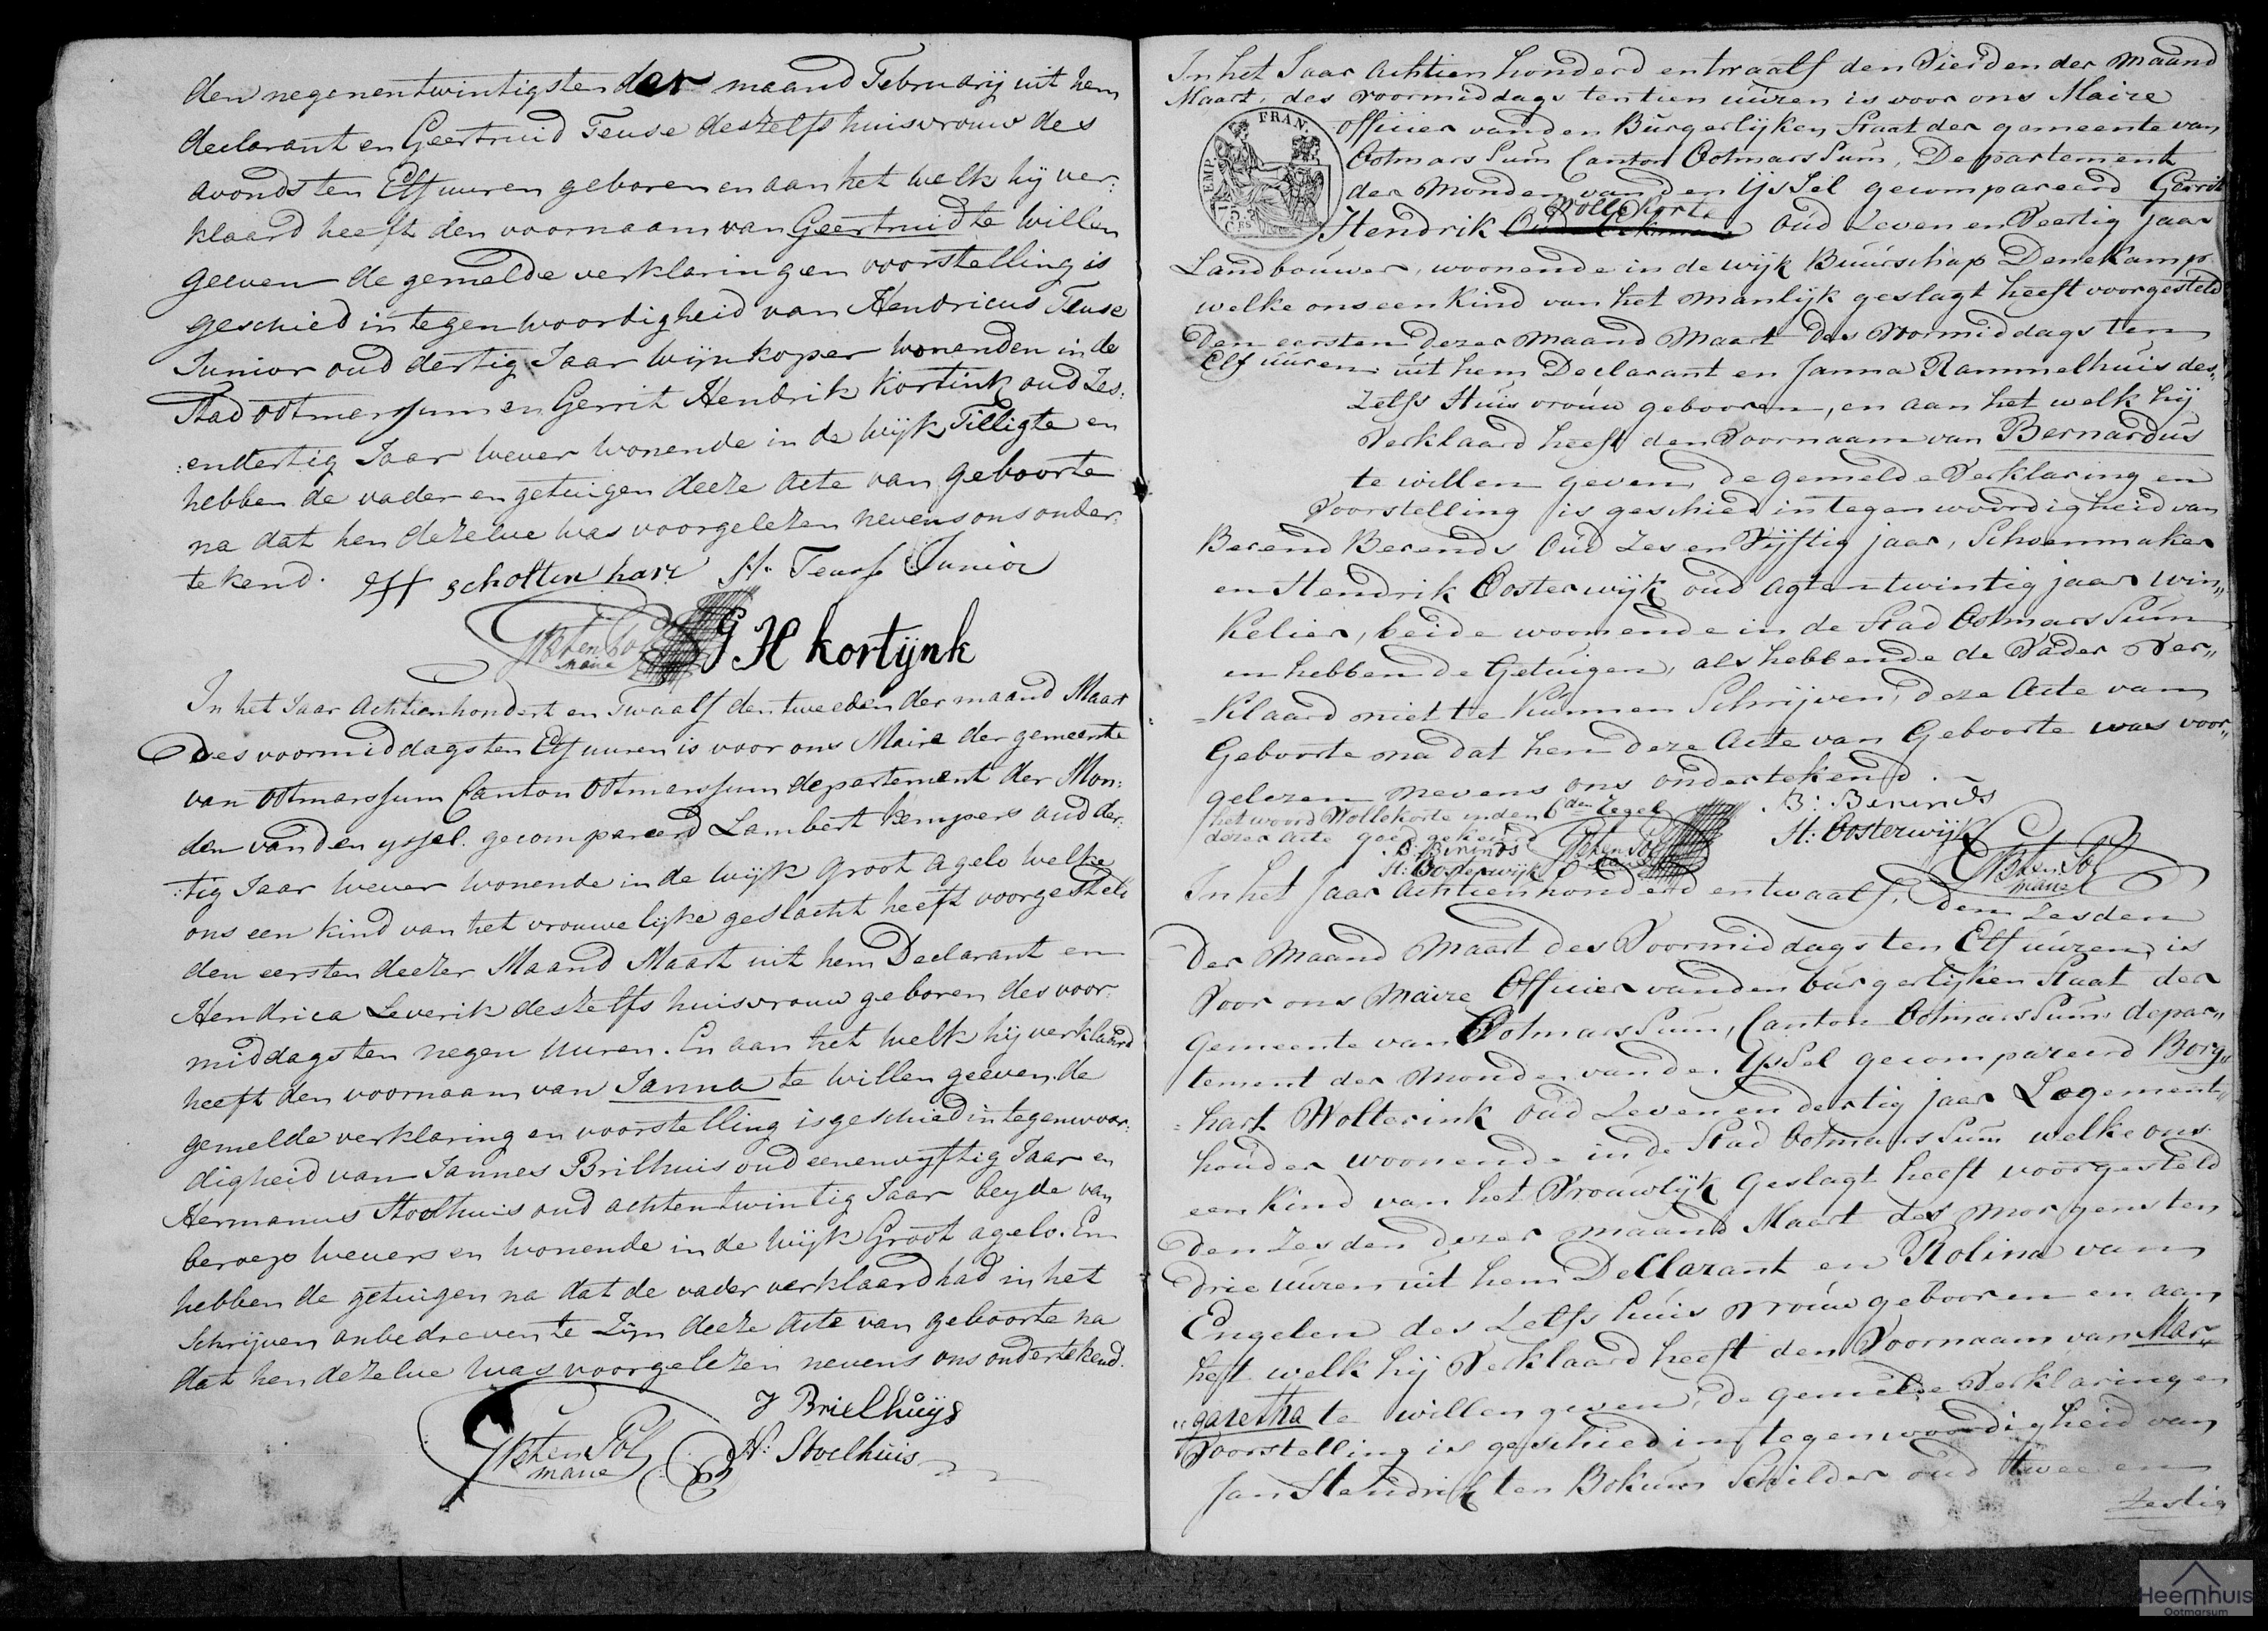 den negenentwintigsten der maand Februarij uit hem
declarant en Geertruid Teuse deszelfs huisvrouw des
avonds ten Elf uuren geboren en aan het welk hij ver:
klaard heeft den voornaam van Geertruid te willen
geeven de gemelde verklaring en voorstelling is
geschied in tegenwoordigheid van Hendricus Teuse
Junior oud dertig Jaar wijnkoper wonenden in de
Stad Ootmarssum en Gerrit Hendrik Kortink oud Zes:
:endertig Jaar wever wonende in de wijk Tilligte en
hebben de vader en getuigen deeze acte van geboorte
na dat hen dezelve was voorgelezen nevens ons onder:
tekend. scholten have H. Teuse Junior
ten Pol
maire
G H kortijnk
In het Jaar achtienhondert en Twaalf den tweeden der maand Maart
Des voormiddags ten Elf uuren is voor ons Maire der gemeente
van Ootmarssum Canton Ootmarssum departement der Mon:
den van den yssel. gecompareerd Lambert Kempers oud der:
:tig Jaar wever wonende in de wijk Groot agelo welke
ons een kind van het vrouwelijke geslacht heeft voorgesteld
den eersten deezer Maand Maart uit hem Declarant en
Hendrica Leverik deszelfs huisvrouw geboren des voor:
middags ten negen uuren. En aan het welk hij verklaard
heeft den voornaam van Janna te willen geeven, de
gemelde verklaring en voorstelling is geschied in tegenwoor:
digheid van Jannes Brilhuis oud eenenvyftig Jaar en
Hermannus Stoelhuis oud achtentwintig Jaar beyde van
beroep wevers en wonende in de wijk Groot agelo. En
hebben de getuigen na dat de vader verklaard had in het
Schrijven onbedreven te Zijn deeze Acte van geboorte na
dat hen dezelve was voorgelezen nevens ons ondertekend.
J Brielhuijs
ten Pol
maire
H: Stoelhuis
In het Jaar Achtien honderd en twaalf den Vierden der Maand
Maart, des voormiddags ten tien uúren is voor ons Maire
EMP. FRAN.
officier van den Búrgerlijken Staat der gemeente van
Ootmarssúm Canton Ootmarssúm, Departement
der Monden van den Ijssel gecompareerd Gerrit
Wollekorte
Hendrik oúd Zeven en Veertig jaar
75 Ces
Landboúwer, woonende in de wijk Búúrschap Denekamp
welke ons een Kind van het manlijk geslagt heeft voorgesteld
Den eersten dezer maand Maart des Voormiddags ten
Elf úúren, úit hem Declarant en Janna Rammelhúis des„
Zelfs Húis vroúw gebooren, en aan het welk hij
Verklaard heeft den Voornaam van Bernardús
te willen geven, de gemelde Verklaring en
Voorstelling is geschied in tegenwoordigheid van
Berend Berends Oúd Zes en Vijftig jaar, Schoenmaker
en Hendrik Oosterwijk oúd agtentwintig jaar win„
kelier, beide woonende in de Stad Ootmarssúm
en hebben de Getúigen, als hebbende de Vader Ver„
=Klaard niet te Kúnnen Schrijven, deze Acte van
Geboorte na dat hen deze Acte van Geboorte was voor„
gelezen nevens ons ondertekend.
het woord Wollekorte in den 6den Regel
dezer acte goed gekeurd
B: Berends
B: Berends
H: Oosterwijk
H: Oosterwijk
ten Pol
maire
ten Pol
maire
In het Jaar Achtien honderd en twaalf, Den Zesden
Der Maand Maart des Voormiddags ten Elf uúren, is
Voor ons Maire Officier van den búrgerlijken Staat der
Gemeente van Ootmarssúm, Canton Ootmarssúm, depar„
tement der Monden van de. IJssel gecompareerd Borg„
=hart Wolterink oúd Zeven en dertig jaar Logement„
hoúder woonende in de Stad Ootmarssúm welke ons
een Kind van het Vroúwlijk Geslagt heeft voorgesteld
Den Zesden dezer maand Maart des morgens ten
drie uúren úit hem Declarant en Rolina van
Engelen des Zelfs húis vroúw gebooren en aan
het welk hij Verklaard heeft den Voornaam van Mar„
„garetha te willen geven, de gemelde Verklaring en
Voorstelling is geschied in tegenwoordigheid van
Jan Hendrik ten Bokúm Schilder oúd twee en
Zestig
Heemhuis
Ootmarsum